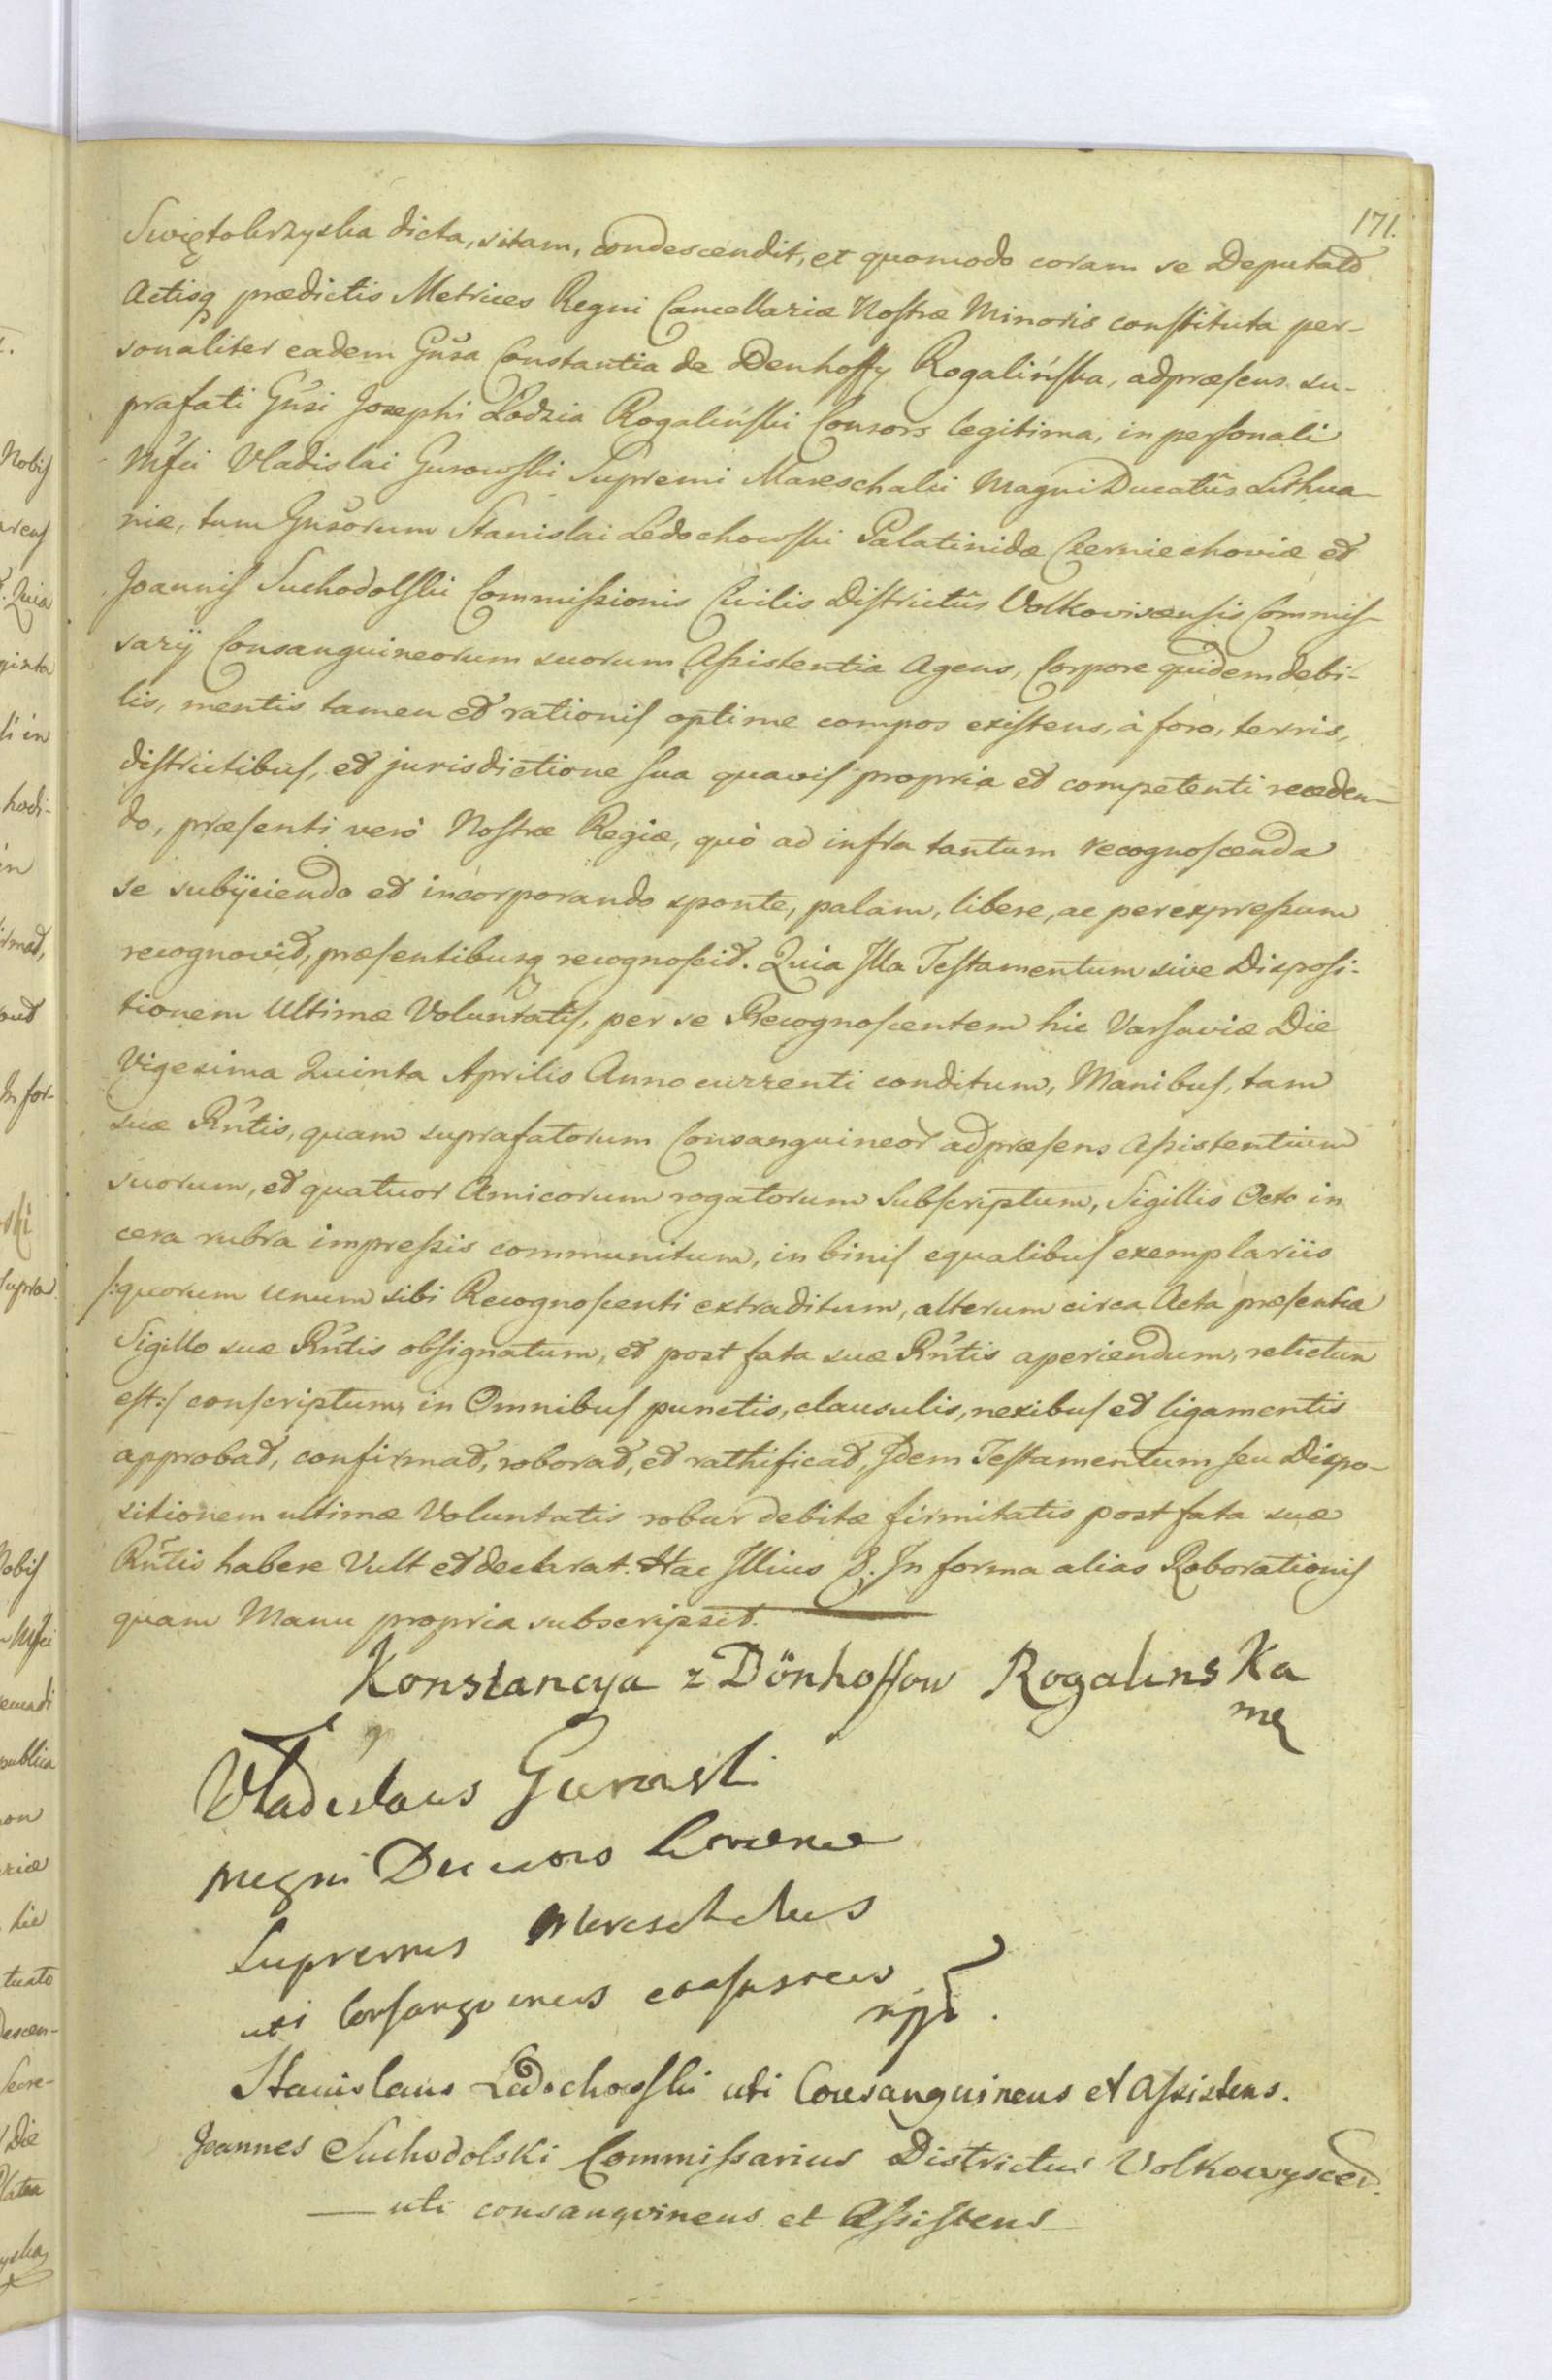 171.
Swiętokrzyska dicta, sitam, condescendit, et quomodo coram se Deputato
Actisq prædictis Metrices Regni Cancellariæ Nostræ Minoris constituta per-
sonaliter eadem Gn̄sa Constantia de Denhoffy Rogalińska, adpræsens su-
prafati Gn̄si Josephi Łodzia Rogaliński Consors legitima, in personali
Mfci Vladislai Gurowski Supremi Mareschalci Magni Ducatûs Lithua-
niæ, tum Gnšorum Stanislai Ledochowski Palatinidæ Czerniechoviæ et
Joannis Suchodolski Commissionis Civilis Districtûs Volkoviscensis Commis-
sarÿ Consanguineorum suorum Assistentia Agens, Corpore quidem debi-
lis, mentis tamen et rationis optime compos existens, à foro, terris,
districtibus, et jurisdictione sua quavis propria et competenti receden-
do, præsenti verò Nostræ Regiæ, quò ad infra tantum recognoscenda
se subÿciendo et incorporando sponte, palam, libere, ac per expressum
recognovit, præsentibusq recognoscit. Quia Illa Testamentum sive Disposi-
tionem Ultimæ Voluntatis, per se Recognoscentem hic Varsaviæ Die
Vigesima Quinta Aprilis Anno currenti conditum, Manibus, tam
suæ Rn̄tis, quam suprafatorum Consanguineor adpræsens Assistentium
suorum, et quatuor Amicorum rogatorum Subscriptum, Sigillis Octo in
cera rubra impressis communitum, in binis equalibus exemplariis
/:quorum unum sibi Recognoscenti extraditum, alterum circa Acta præsentia
Sigillo suæ Rn̄tis obsignatum, et post fata suæ Rn̄tis aperiendum, relictum
est:/ conscriptum, in Omnibus punctis, clausulis, nexibus et ligamentis
approbat, confirmat, roborat, et rathificat, Idem Testamentum seu Dispo-
sitionem ultimæ Voluntatis robur debitæ firmitatis post fata suæ
Rn̄tis habere Vult et declarat. Hac Illius S. In forma alias Roborationis
quam Manu propria subscripsit.
Konstancya z Dönhoffow Rogalinska
mp
Vladislaus Gurowski
Magni Ducatus Litvaniæ
Supremus Mareschalcus
uti Consanguineus et assistens
mpp.
Stanislaus Ledochowski uti Consanguineus et Assistens.
Joannes Suchodolski Commissarius Districtus Volkowyscen.
— uti consangvineus et Assistens